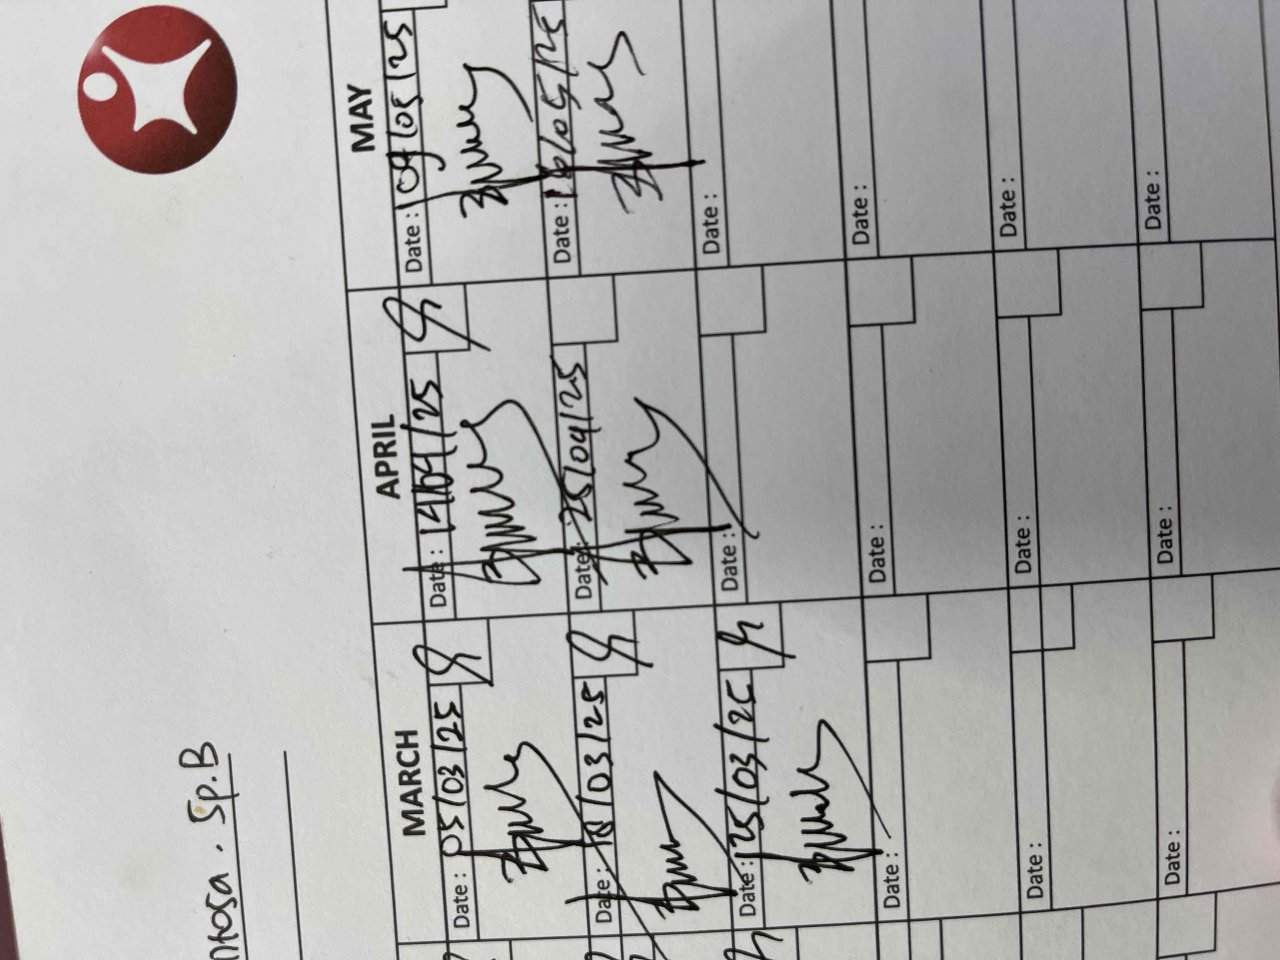 ntosa . Sp.B
MARCH
APRIL
MAY
Date : 05/03/25
Date : 14/04/25
Date : 09/05/25
Date : 18/03/25
Date : 25/04/25
Date : 16/05/25
Date : 25/03/25
Date :
Date :
Date :
Date :
Date :
Date :
Date :
Date :
Date :
Date :
Date :